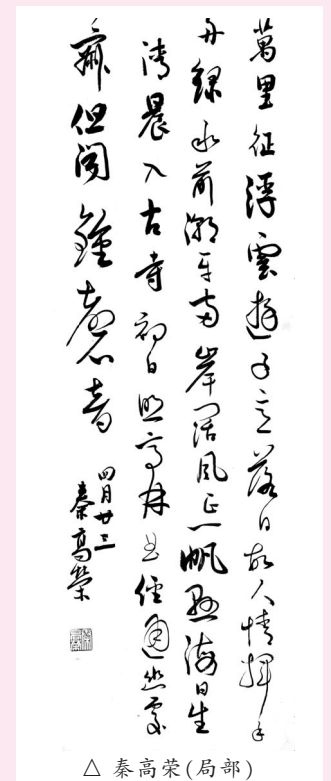 萬里征浮雲遊子意落日故人情揮手
舟綠水前潮平兩岸闊風正一帆懸海日生
清晨入古寺初日照高林曲徑通幽處
寂但聞鐘磬音
四月廿三
秦高榮
△ 秦高荣(局部)